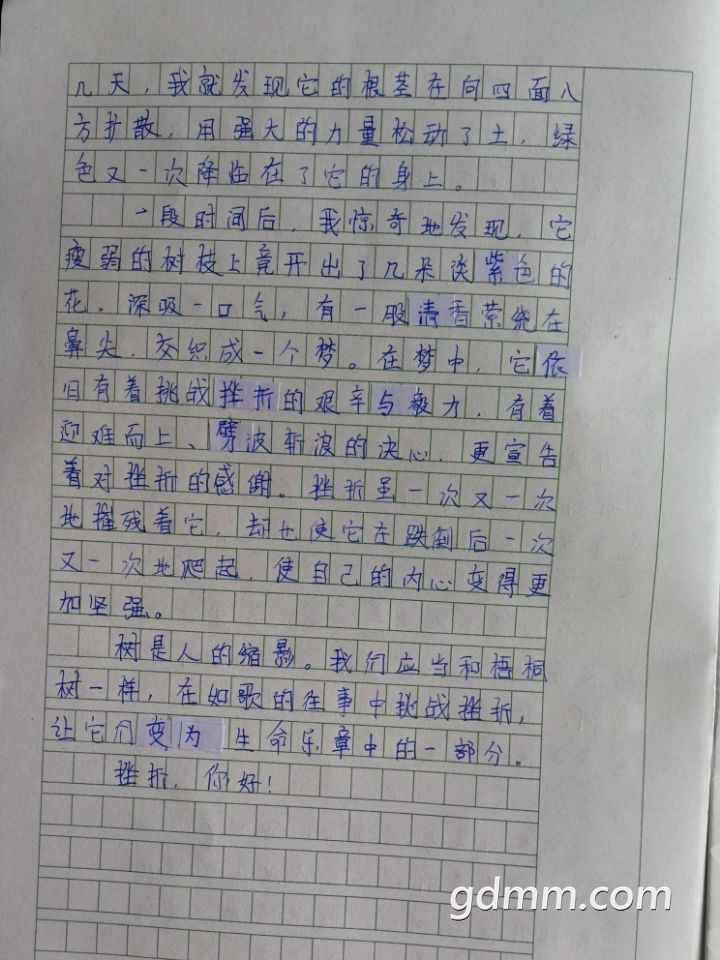 几天，我就发现它的根茎在向四面八
方扩散，用强大的力量松动了土，绿
色又一次降临在了它的身上。
一段时间后，我惊奇地发现，它
瘦弱的树枝上竟开出了几朵淡紫色的
花。深吸一口气，有一股清香萦绕在
鼻尖，交织成一个梦。在梦中，它依
旧有着挑战挫折的艰辛与毅力，有着
迎难而上、劈波斩浪的决心，更宣告
着对挫折的感谢。挫折虽一次又一次
地摧残着它，却也使它在跌倒后一次
又一次地爬起，使自己的内心变得更
加坚强。
树是人的缩影。我们应当和梧桐
树一样，在如歌的往事中挑战挫折，
让它们变为生命乐章中的一部分。
挫折，你好！
gdmm.com